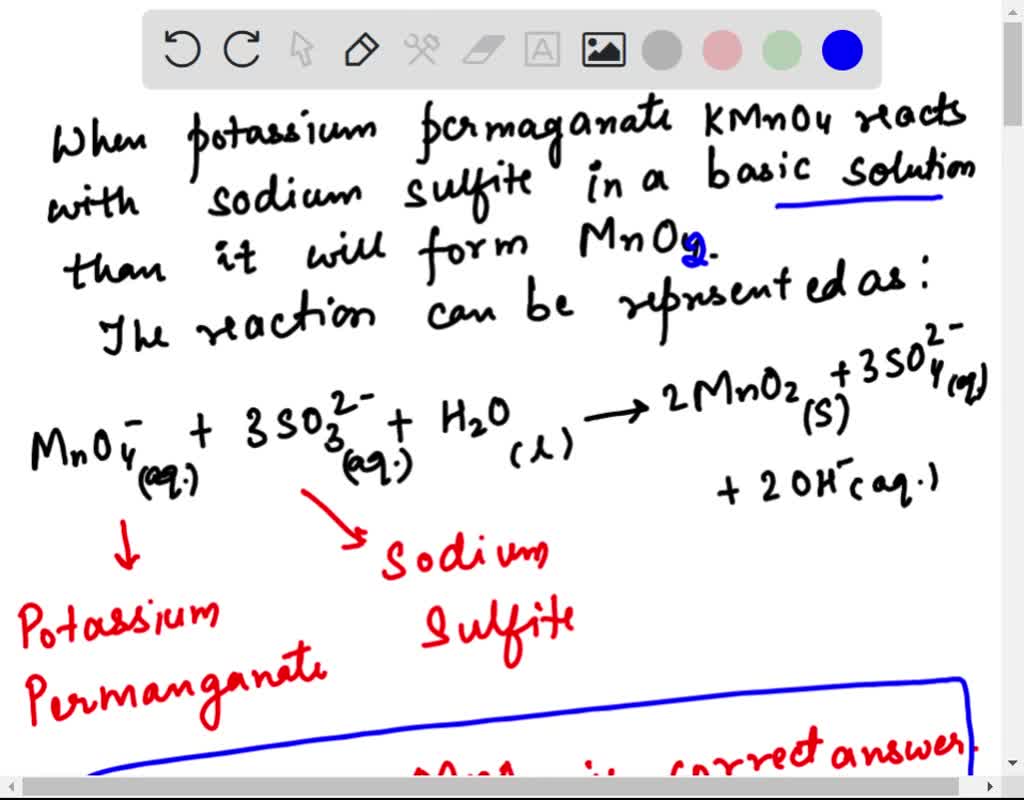 When potassium permaganate KMnO4 reacts
with sodium sulfite in a basic solution
than it will form MnO2.
The reaction can be reprsented as:
MnO4⁻(aq.) + 3SO3²⁻(aq.) + H2O(l) → 2MnO2(S) + 3SO4²⁻(aq)
+ 2OH⁻(aq.)
Potassium Permanganate
Sodium Sulfite
correct answer.